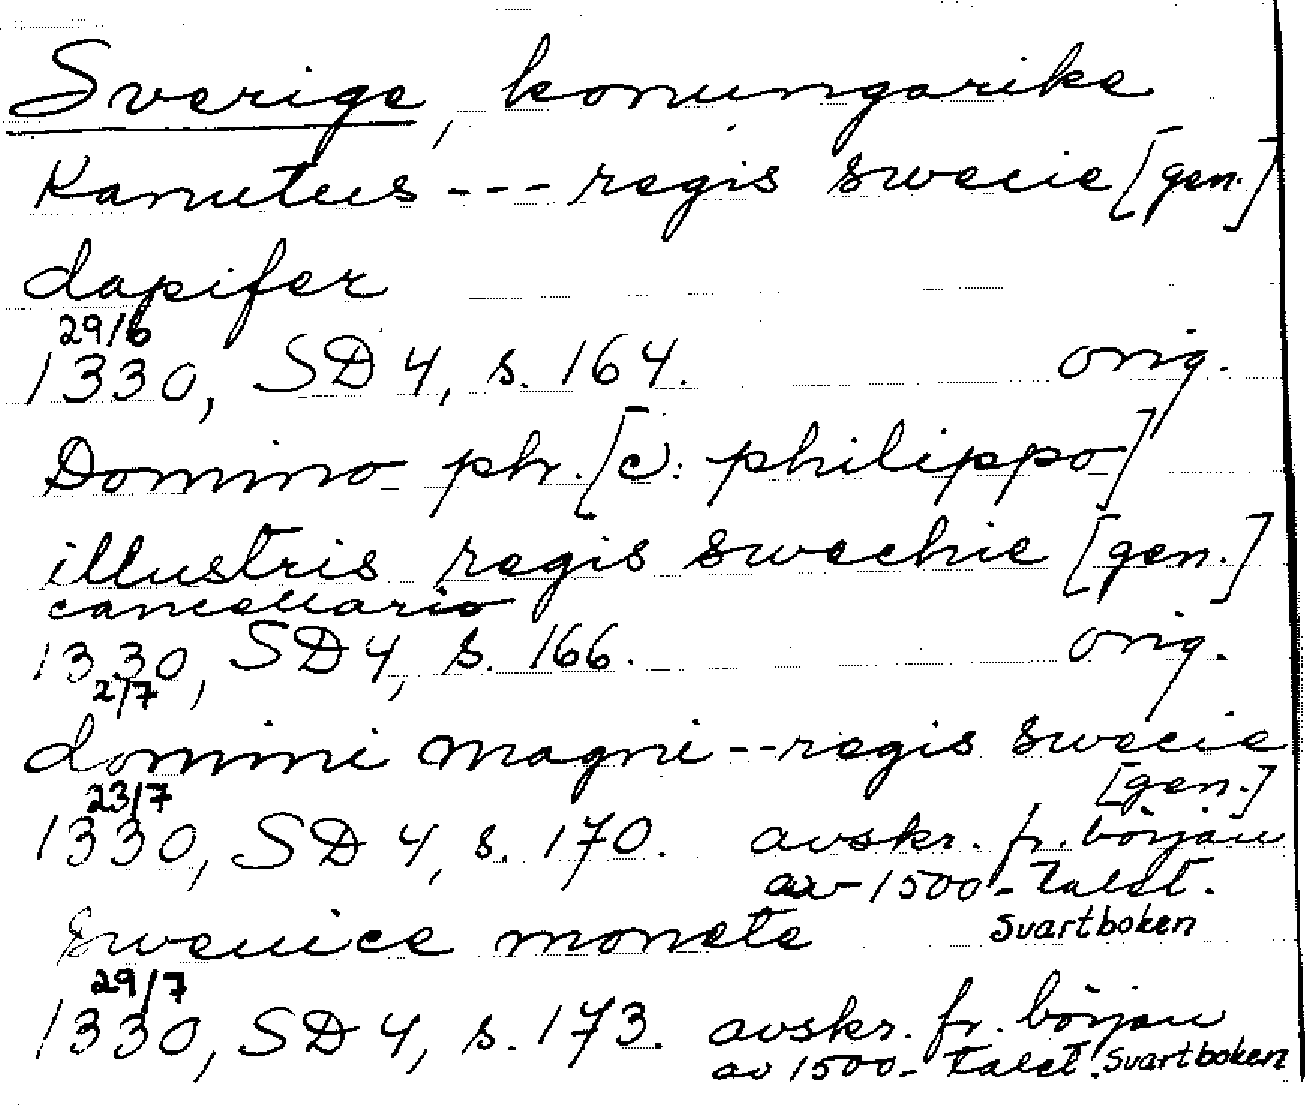 Sverige, konungarike
Kanutus --- regis swecie [gen.]
dapifer
29/6
1330, SD 4, s. 164. orig.
Domino ph. [c: philippo]
illustris regis swechie [gen.]
cancellario
1330, SD 4, s. 166. orig.
2/7
domini magni -- regis swecie
[gen.]
23/7
1330, SD 4, s. 170. avskr. fr. början
av 1500-talet.
swenice monete Svartboken
29/7
1330, SD 4, s. 173. avskr. fr. början
av 1500-talet. Svartboken